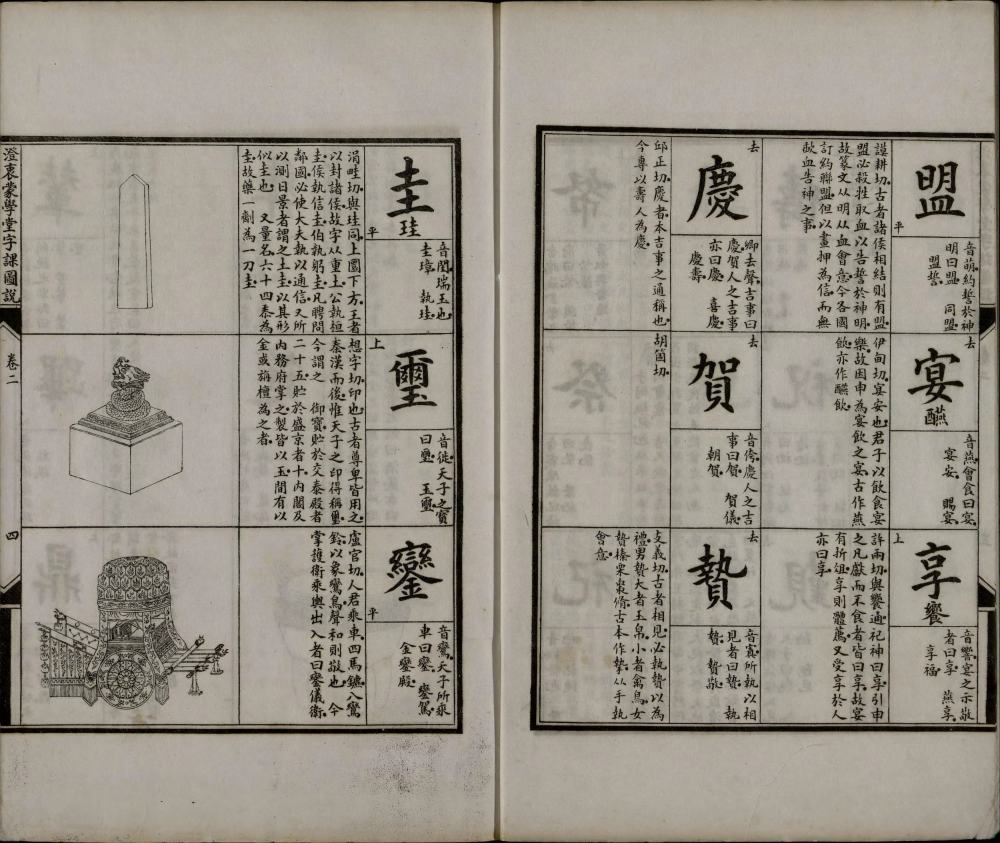 盟
平
音萌約誓於神
明曰盟 同盟
盟誓
謨耕切古者諸侯相結則有盟
盟必殺牲取血以告誓於神明
故篆文从明从血會意今各國
訂約聯盟但以畫押為信而無
歃血告神之事
宴
醼
去
音燕會食曰宴
宴安 賜宴
伊甸切宴安也君子以飲食宴
樂故因申為宴飲之宴古作燕
飲亦作醼飲
享
饗
上
音響宴之示敬
者曰享 燕享
享福
許兩切與饗通祀神曰享引申
之凡獻而不食者皆曰享故宴
有折俎享則體薦又受享於人
亦曰享
慶
去
卿去聲吉事曰
慶賀人之吉事
亦曰慶 喜慶
慶壽
邱正切慶者本吉事之通稱也
今專以壽人為慶
賀
去
音倄慶人之吉
事曰賀 賀儀
朝賀
胡箇切
贄
去
音寘所執以相
見者曰贄 執
贄 贄敬
支義切古者相見必執贄以為
禮男贄大者玉帛小者禽鳥女
贄榛栗棗脩古本作摯从手執
會意
圭
珪
平
音閨瑞玉也
圭璋 執珪
涓畦切與珪同上圜下方王者
以封諸侯故字从重土公執桓
圭侯執信圭伯執躬圭凡聘問
鄰國必使大夫執以通信又所
以測日景者謂之土圭以其形
似圭也 又量名六十四黍為
圭故藥一劑為一刀圭
璽
上
音徙天子之寶
曰璽 玉璽
想字切印也古者尊卑皆用之
秦漢而後惟天子之印得稱璽
今謂之 御寶貯於交泰殿者
二十五貯於盛京者十內閣及
內務府掌之製皆以玉間有以
金或旃檀為之者
鑾
平
音鸞天子所乘
車曰鑾 鑾駕
金鑾殿
盧官切人君乘車四馬鑣八鸞
鈴以象鸞鳥聲和則敬也 今
掌護衛乘輿出入者曰鑾儀衛
澄衷蒙學堂字課圖說
卷二
四